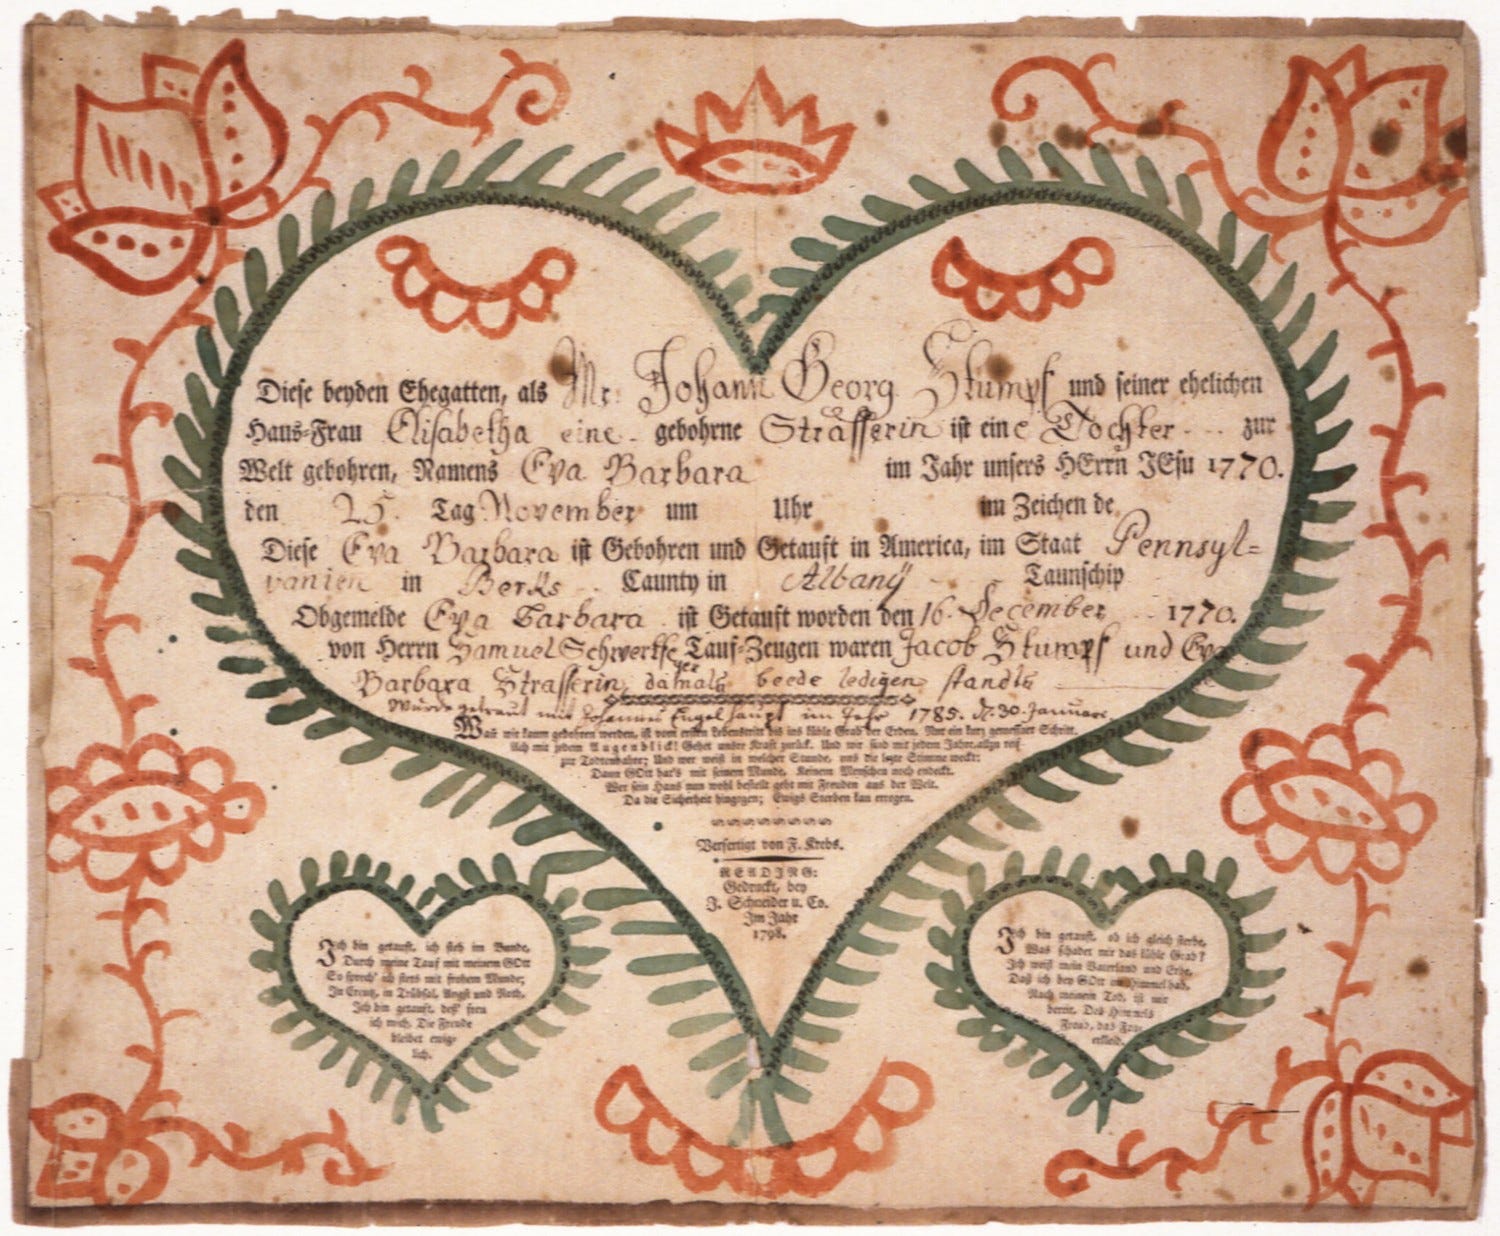 Diese beyden Ehegatten, als Mr: Johann Georg Stumpf und seiner ehelichen
Haus-Frau Elisabetha eine gebohrne Strasserin ist eine Tochter zur
Welt gebohren, Namens Eva Barbara im Jahr unsers HErrn JEsu 1770.
den 25. Tag November um Uhr im Zeichen de
Diese Eva Barbara ist Gebohren und Getauft in America, im Staat Pennsyl=
vanien in Berks Caunty in Albany Taunschip
Obgemelde Eva Barbara ist Getauft worden den 16. December 1770.
von Herrn Samuel Tauf-Zeugen waren Jacob Stumpf und Eva
Barbara Strasserin, damals beede ledigen standts
Wurde getraut mit Johannes Engel im Jahr 1785. d. 30. Januari.
Wañ wir kaum gebohren werden, ist vom ersten Lebenstritt bis ins kühle Grab der Erden. Nur ein kurz gemessner Schritt.
Ach mit jedem Augenblick! Gehet unsre Kraft zurück. Und wir sind mit jedem Jahre, allzu reif
zur Todtenbahre; Und wer weiß in welcher Stunde, uns die letzte Stimme weckt:
Dann GOtt hat's mit seinem Munde, Keinem Menschen noch endeckt.
Wer sein Haus nun wohl bestellt geht mit Freuden aus der Welt.
Da die Sicherheit hingegen; Ewigs Sterben kan erregen.
Verfertigt von F. Krebs.
READING:
Gedruckt, bey
J. Schneider u. Co.
Im Jahr
1798.
Ich bin getauft, ich steh im Bunde,
Durch meine Tauf mit meinem GOtt
So sprech' ich stets mit frohem Munde;
In Creutz, in Trübsal, Angst und Noth,
Ich bin getauft, deß' freu
ich mich. Die Freude
bleibet ewig-
lich.
Ich bin getauft, ob ich gleich sterbe,
Was schadet mir das kühle Grab?
Ich weiß mein Vaterland und Erbe,
Daß ich bey GOtt im Himmel hab,
Nach meinem Tod, ist mir
bereit, Des Himmels
Freud, das Fey-
erkleid.